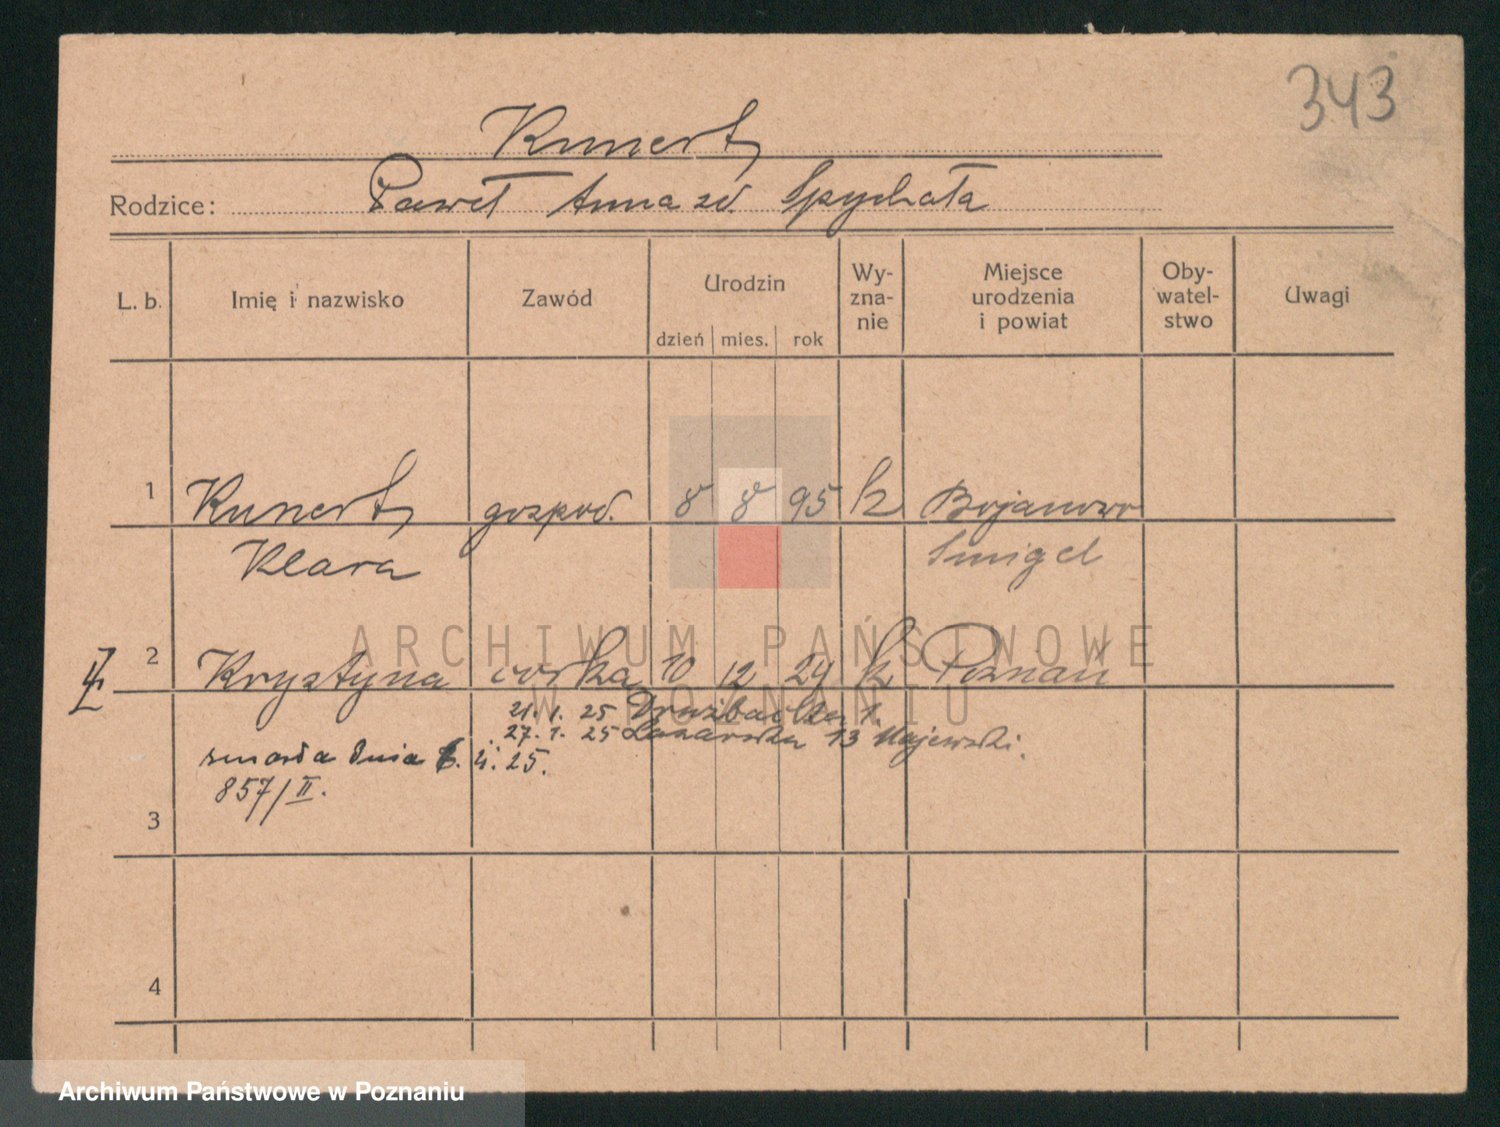 343
Kunert
Rodzice: Paweł Anna zd. Spychała
L. b. Imię i nazwisko Zawód Urodzin dzień mies. rok Wy-zna-nie Miejsce urodzenia i powiat Oby-watel-stwo Uwagi
1 Kunert gospod. 8 8 95 k Bojanowo
Klara Śmigel
2 Krystyna córka 10 12 24 k Poznań
21. 1. 25 1.
27. 1. 25 Łazarska 13 Majewski.
zmarła dnia 4. 25.
857/II.
3
4
ARCHIWUM PAŃSTWOWE
W POZNANIU
Archiwum Państwowe w Poznaniu